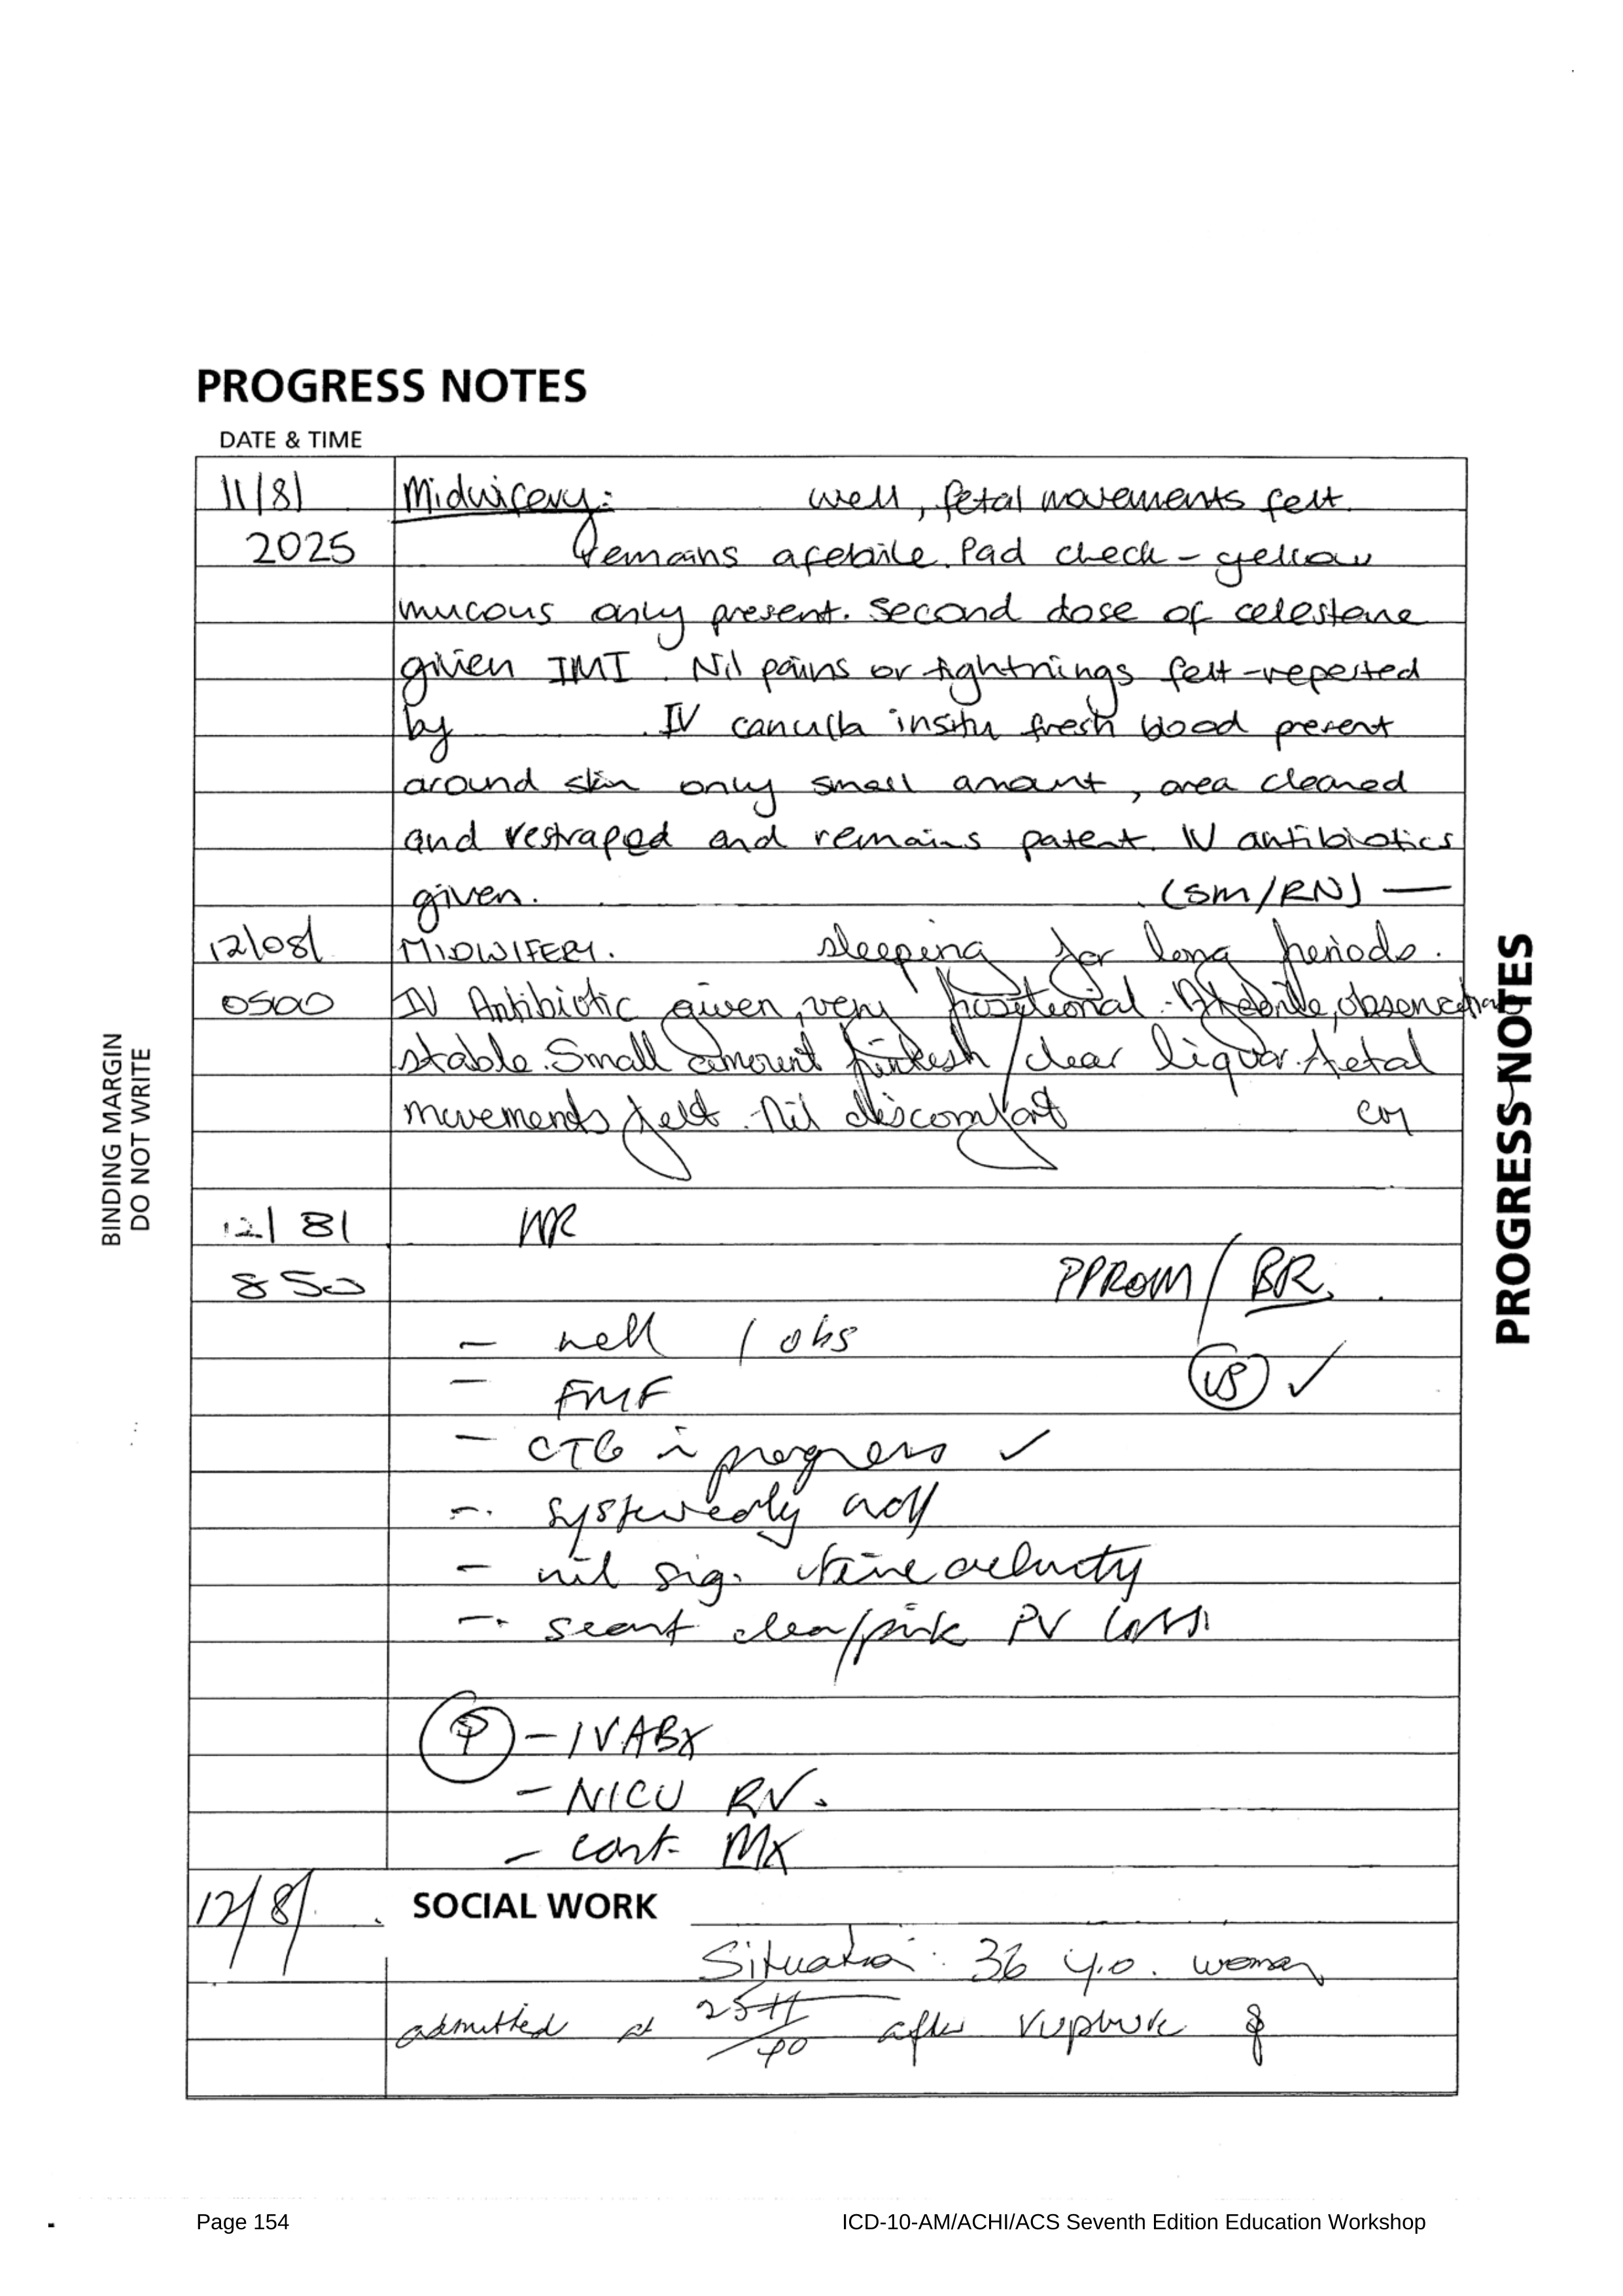 PROGRESS NOTES
DATE & TIME
11/8/ Midwifery: well, fetal movements felt.
2025 remains afebrile. Pad check - yellow
mucous only present. Second dose of celestone
given IMI. Nil pains or tightnings felt - reported
by . IV canulla insitu fresh blood present
around skin only small amount, area cleaned
and restraped and remains patent. IV antibiotics
given. (SM/RN) —
12/08/ MIDWIFERY. sleeping for long periods.
0500 IV Antibiotic given, very positional. Afebrile, observations
stable. Small amount pinkish/clear liquor. Fetal
movements felt. Nil discomfort
12/8/ WR
850 PPROM / BR.
- well / obs
- FMF
- CTG in progress ✓
- systemically well
- nil sig. uterine activity
- scant clear/pink PV loss.
(P) - IV ABX
- NICU RV.
- cont. MX
12/8/. SOCIAL WORK
Situation: 36 y.o. woman
admitted at /40 after rupture of
BINDING MARGIN
DO NOT WRITE
PROGRESS NOTES
Page 154 ICD-10-AM/ACHI/ACS Seventh Edition Education Workshop